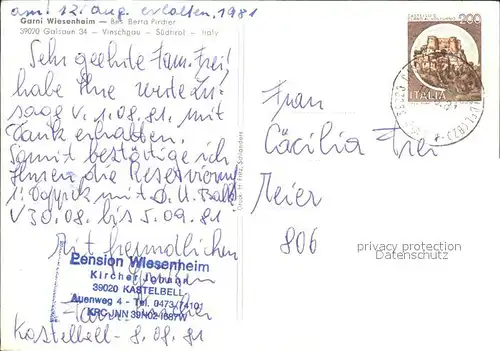 am: 12. aug. erhalten, 1981
Garni Wiesenheim – Bes. Berta Pircher
39020 Galsaun 34 – Vinschgau – Südtirol – Italy
Sehr geehrte Fam. Frei!
habe Ihre werte Zu-
sage v. 1.08.81. mit
Dank erhalten.
Somit bestättige ich
Ihnen die Reservierung
1. Doppelz mit D. U. Balk
v 30.08. bis 5.09.81
Mit freundlichen
Pension Wiesenheim
Kircher Johann
39020 KASTELBELL
Auenweg 4 - Tel. 0473/74101
Kastelbell - 8.08.81
200
ITALIA
Frau
Cäcilia Frei
Meier
806
privacy protection
Datenschutz